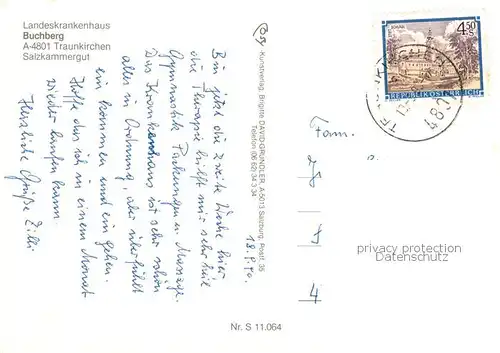 Landeskrankenhaus
Buchberg
A-4801 Traunkirchen
Salzkammergut
18.9.90
Bin jetzt die zweite Woche hier
die Therapie hilft mir sehr viel
Gymnastik Packungen u. Massage.
Das Krankenhaus ist sehr schön
alles in Ordnung, aber überfüllt
ein kommen und ein gehen.
Hoffe das ich in einem Monat
wieder laufen kann.
Herzliche Grüße Zilli
Kunstverlag, Brigitte DAVID-GRÜNDLER, A-5013 Salzburg, Postf. 35
Telefon (06 62) 34 3 34
4.50
S
REPUBLIK ÖSTERREICH
Fam.
4
privacy protection
Datenschutz
Nr. S 11.064